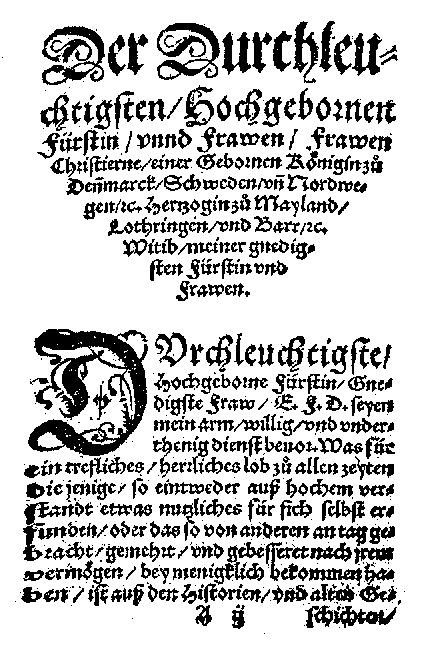 Der Durchleu-
chtigsten/Hochgebornen
Fürstin/vnnd Frawen/ Frawen
Christierne/einer Gebornen Königin zů
Deñmarck/Schweden/vñ Nordwe-
gen/ꝛc. Hertzogin zů Mayland/
Lothringen/vnd Barr/ꝛc.
Witib/meiner gnedig-
sten Fürstin vnd
Frawen.
DVrchleuchtigste/
Hochgeborne Fürstin/Gne-
digste Fraw/ E. F. D. seyen
mein arm/willig/vnd vnder-
thenig dienst beuor. Was für
ein trefliches/herrliches lob zů allen zeyten
die jenige/ so eintweder auß hochem ver-
standt etwas nutzliches für sich selbst er-
funden/oder das so von anderen an tag ge-
bracht/gemehrt/vnd gebesseret nach jrem
vermögen/bey menigklich bekommen ha-
ben/ist auß den Historien/vnd alten Ge-
A ij schichten/